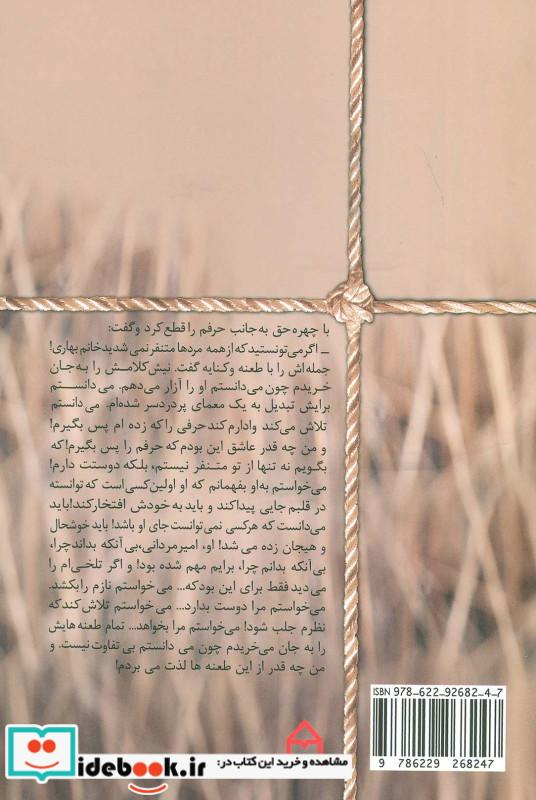 با چهره حق به جانب حرفم را قطع کرد و گفت:
ـ اگر می‌تونستید که از همه مردها متنفر نمی شدید خانم بهاری!
جمله‌اش را با طعنه و کنایه گفت. نیش کلامش را به جان
خریدم چون می‌دانستم او را آزار می‌دهم. می دانستم
برایش تبدیل به یک معمای پردردسر شده‌ام. می‌دانستم
تلاش می‌کند وادارم کند حرفی را که زده ام پس بگیرم!
و من چه قدر عاشق این بودم که حرفم را پس بگیرم! که
بگویم نه تنها از تو متنفر نیستم، بلکه دوستت دارم!
می‌خواستم به‌او بفهمانم که او اولین کسی است که توانسته
در قلبم جایی پیدا کند و باید به خودش افتخار کند! باید
می‌دانست که هرکسی نمی‌توانست جای او باشد! باید خوشحال
و هیجان زده می شد! او، امیر مردانی، بی آنکه بداند چرا،
بی‌آنکه بدانم چرا، برایم مهم شده بود! و اگر تلخی‌ام را
می‌دید فقط برای این بود که... می‌خواستم نازم را بکشد.
می‌خواستم مرا دوست بدارد... می‌خواستم تلاش کند که
نظرم جلب شود! می‌خواستم مرا بخواهد... تمام طعنه هایش
را به جان می‌خریدم چون می دانستم بی تفاوت نیست. و
من چه قدر از این طعنه ها لذت می بردم!
ISBN 978-622-92682-4-7
9 786229 268247
مشاهده و خرید این کتاب در:
idebook.ir